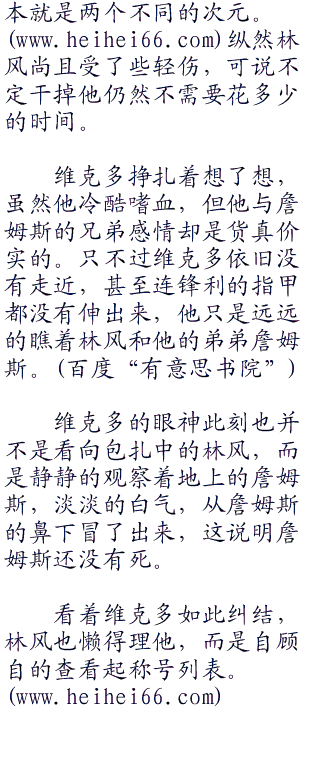 本就是两个不同的次元。
(www.heihei66.com)纵然林
风尚且受了些轻伤，可说不
定干掉他仍然不需要花多少
的时间。
维克多挣扎着想了想，
虽然他冷酷嗜血，但他与詹
姆斯的兄弟感情却是货真价
实的。只不过维克多依旧没
有走近，甚至连锋利的指甲
都没有伸出来，他只是远远
的瞧着林风和他的弟弟詹姆
斯。(百度“有意思书院”)
维克多的眼神此刻也并
不是看向包扎中的林风，而
是静静的观察着地上的詹姆
斯，淡淡的白气，从詹姆斯
的鼻下冒了出来，这说明詹
姆斯还没有死。
看着维克多如此纠结，
林风也懒得理他，而是自顾
自的查看起称号列表。
(www.heihei66.com)